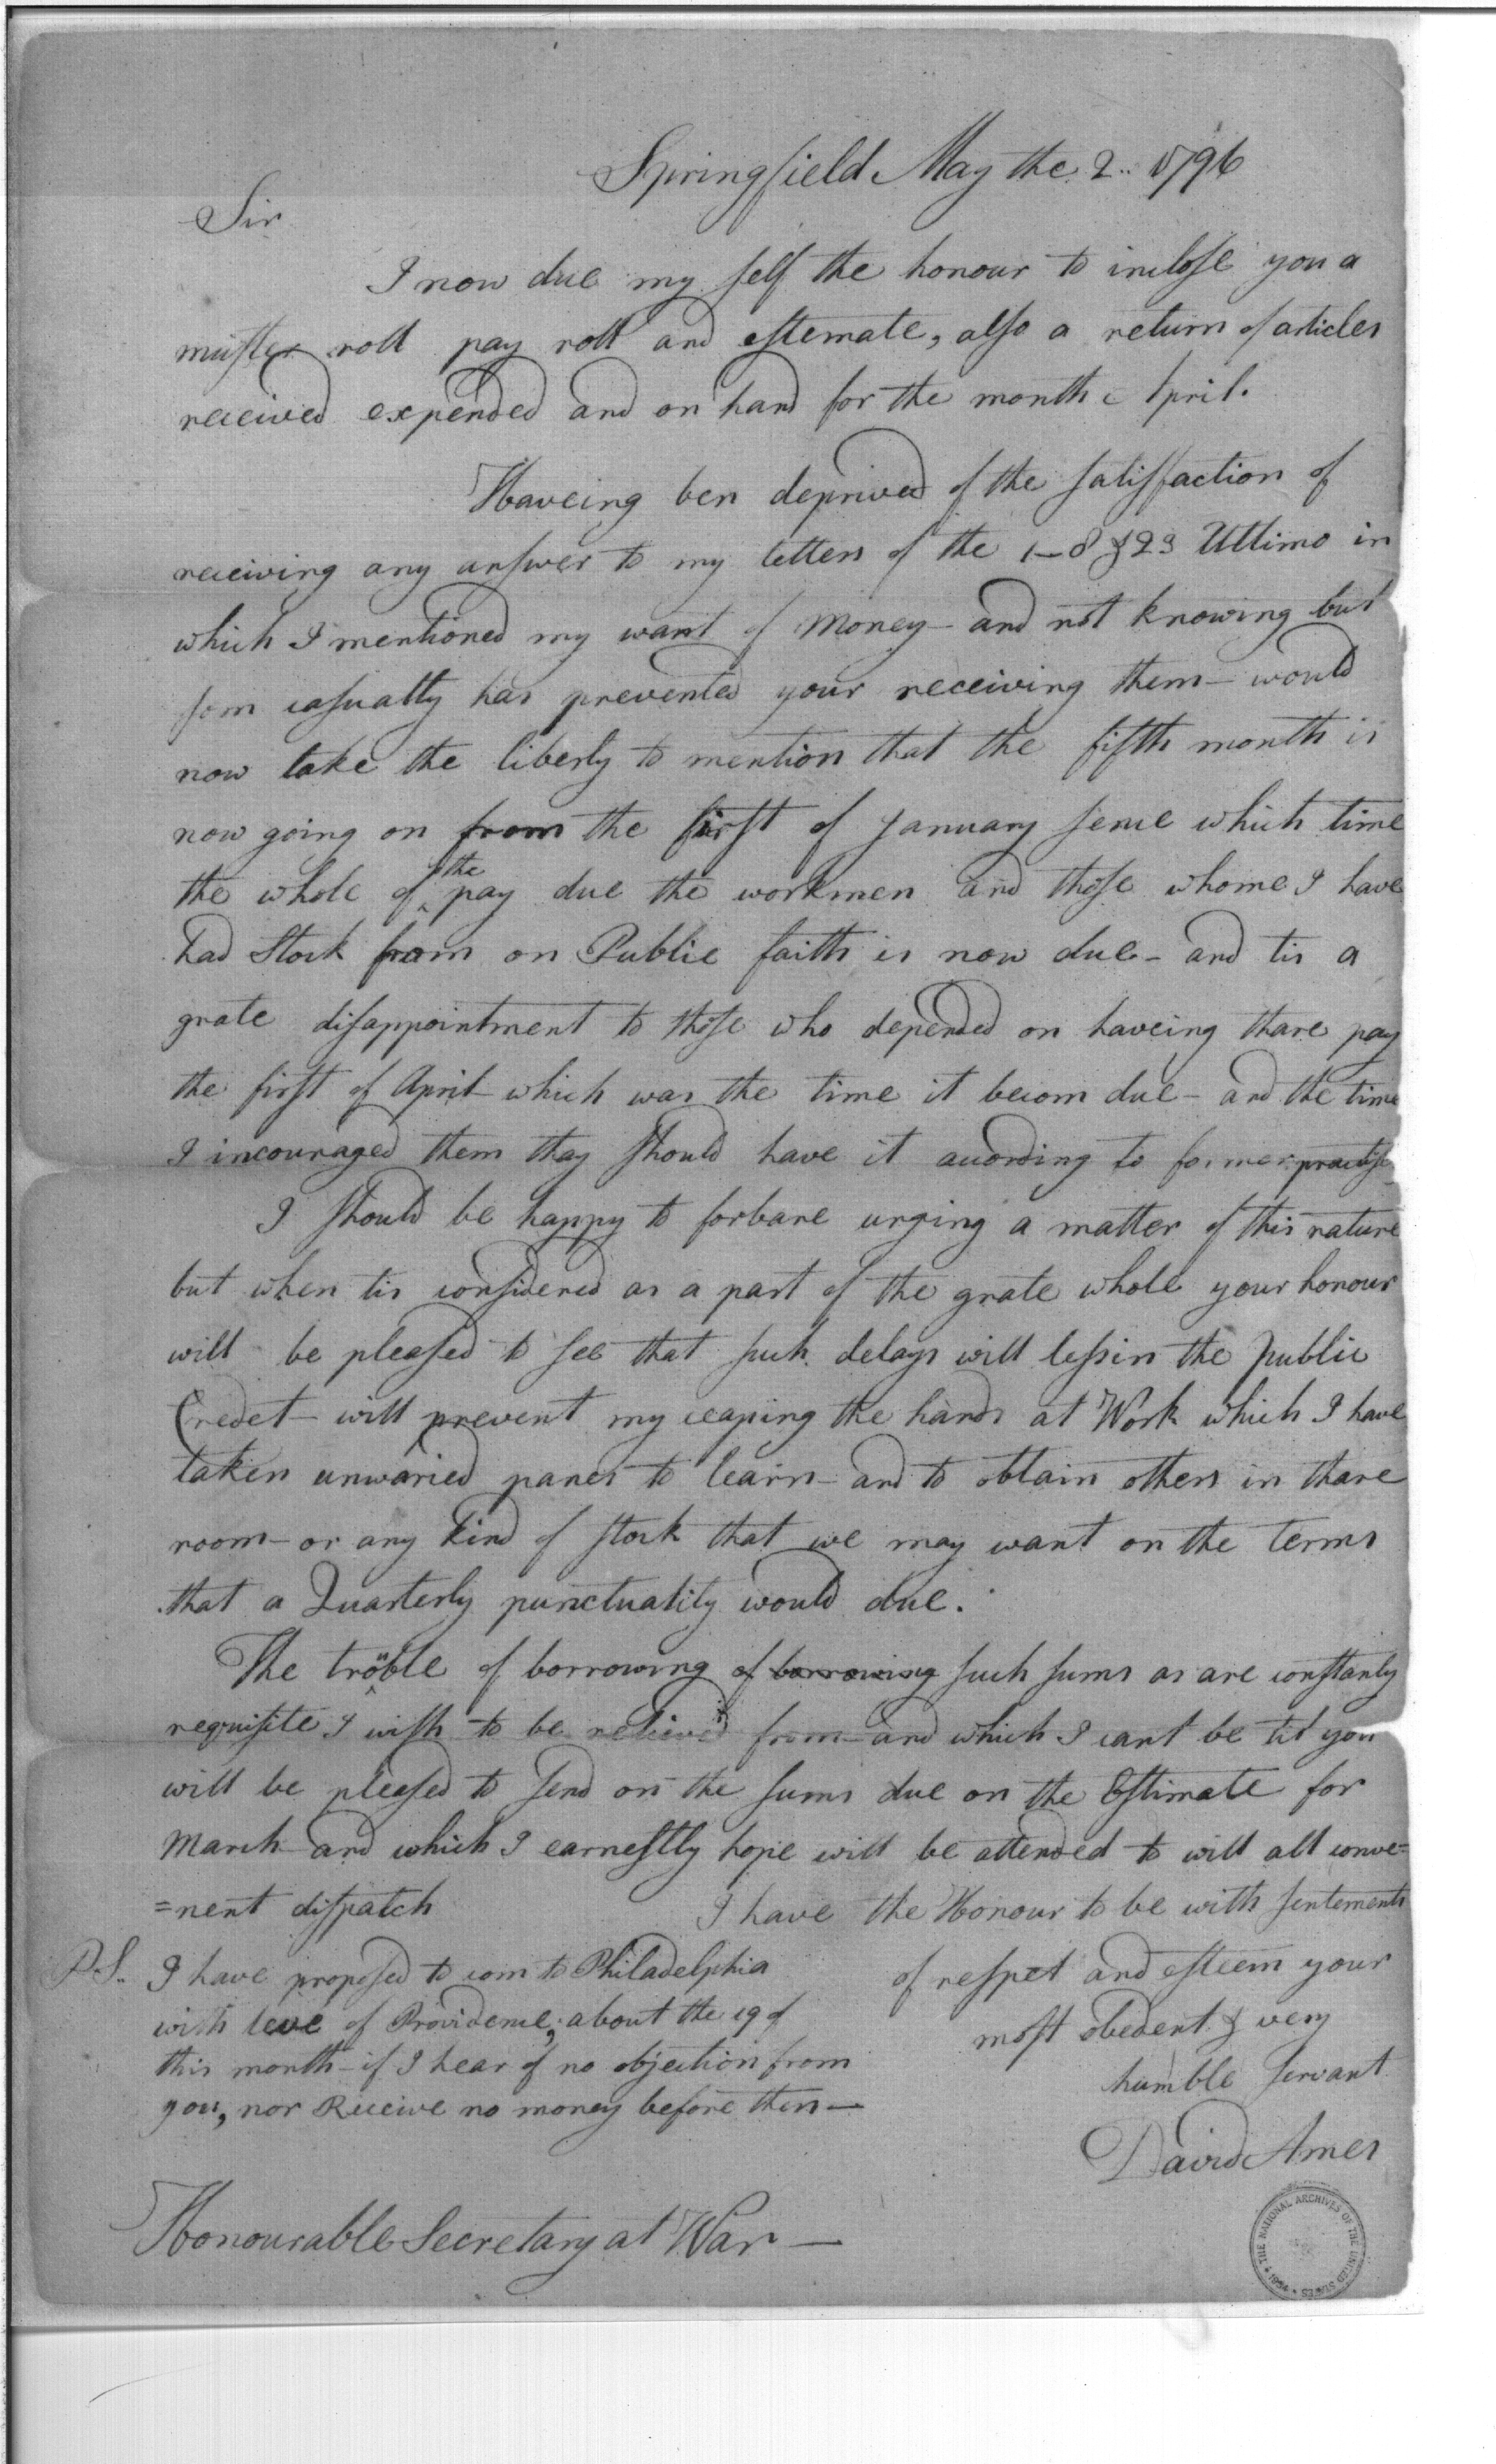 Springfield May the 2.. 1796
Sir
I now due my self the honour to inclose you a
muster roll pay roll and estemate, also a return of articles
received expended and on hand for the month April.
Haveing ben deprived of the satisfaction of
receiving any answer to my letters of the 1– 8 & 23 Ultimo in
which I mentioned my want of Money – and not knowing but
som casualty has prevented your receiving them – would
now take the liberty to mention that the fifth month is
now going on from the first of January sence which time
the whole of the pay due the workmen and those whome I have
had Stock from on Public faith is now due – and tis a
grate disappointment to those who depended on haveing thare pay
the first of April which was the time it becom due – and the time
I incouraged them thay should have it according to former practise
I should be happy to forbare urging a matter of this nature
but when tis considered as a part of the grate whole your honour
will be pleased to see that such delays will lessin the public
Credet – will prevent my ceaping the hands at Work which I have
taken unwaried panes to learn – and to obtain others in thare
room – or any kind of stock that we may want on the terms
that a Quarterly punctuality would due.
The trouble of borrowing of borrowing such sums as are constantly
requisite I wish to be relieved from – and which I cant be til you
will be pleased to send on the sums due on the Estimate for
March – and which I earnestly hope will be attended to will all conve=
=nent dispatch
I have the Honour to be with sentements
of respet and esteem your
most obedent & very
humble servant
David Ames
P.S. I have proposed to com to Philadelphia
with leve of Providence, about the 19 of
this month – if I hear of no objection from
you, nor Receive no money before then –
Honourable Secretary at War –
THE NATIONAL ARCHIVES OF THE UNITED STATES • 1934 •